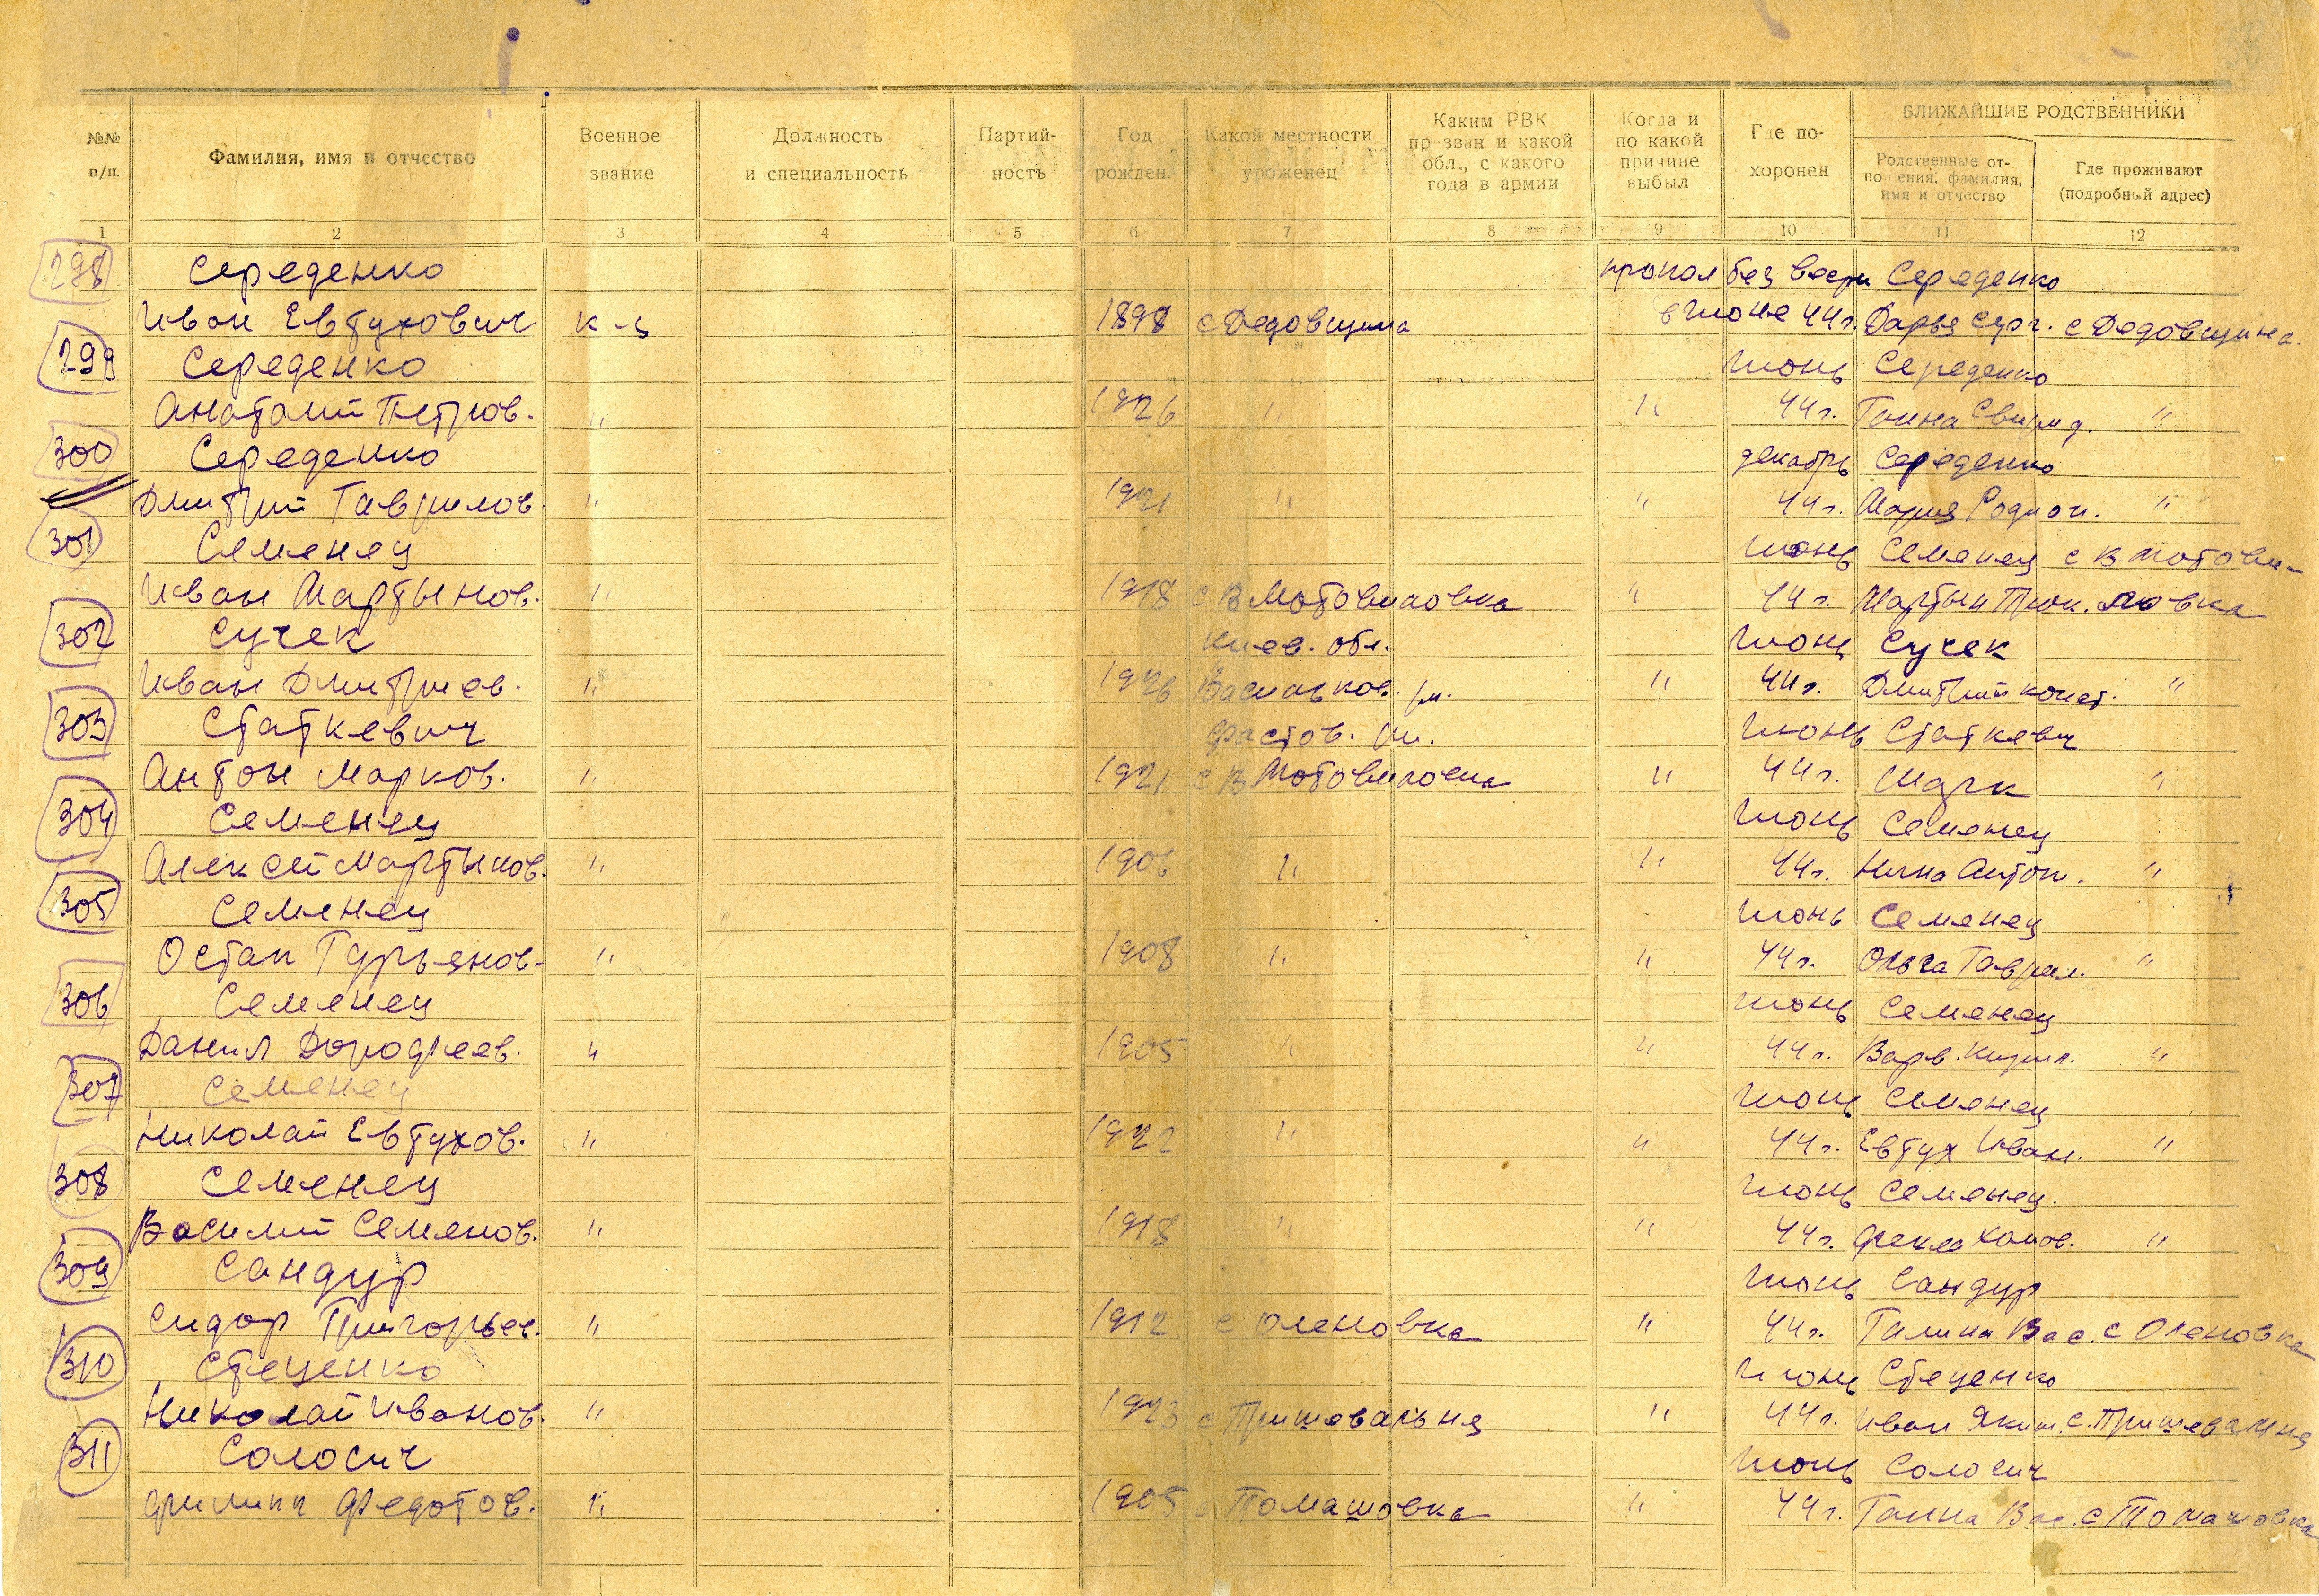 №№ п/п. Фамилия, имя и отчество Военное звание Должность и специальность Партийность Год рожден. Какой местности уроженец Каким РВК пр зван и какой обл., с какого года в армии Когда и по какой причине выбыл Где похоронен БЛИЖАЙШИЕ РОДСТВЕННИКИ
Родственные отно ения, фамилия, имя и отчество Где проживают (подробный адрес)
1 2 3 4 5 6 7 8 9 10 11 12
298 Середенко пропал без вести Середенко
Иван Евтухович к-ц 1898 с Дедовщина в июне 44г. Дарья Серг. с Дедовщина.
299 Середенко Июнь Середенко
Анатолий Петров. " 1926 " " 44г. Ганна Свирид. "
300 Середенко декабрь Середенко
Дмитрий Гаврилов. " 1921 " " 44г. Мария Родион. "
301 Семенец Июнь Семенец с В. Мотови-
Иван Мартынов. " 1918 с В Мотовиловка " 44г. Мартын Прок. ловка
302 Сучек Киев. обл. Июнь Сучек
Иван Дмитриев. " 1926 Васильков. рн. " 44г. Дмитрий конст. "
303 Статкевич Фастов. рн. Июнь Статкевич
Антон Марков. " 1921 с В Мотовиловка " 44г. Марк "
304 Семенец Июнь Семенец
Алексей Мартынов. " 1906 " " 44г. Нина Антон. "
305 Семенец Июнь Семенец
Остап Гурьянов. " 1908 " " 44г. Ольга Гаврил. "
306 Семенец Июнь Семенец
Данил Дорофеев. " 1905 " " 44г. Варв. Кирил. "
307 Семенец Июнь Семенец
Николай Евтухов. " 1922 " " 44г. Евтух Иван. "
308 Семенец Июнь Семенец.
Василий Семенов. " 1918 " " 44г. Фекла "
309 Сандур Июнь Сандур
Сидор Григорьев. " 1912 с Оленовка " 44г. Галина Вас. с Оленовка
310 Стеценко Июнь Стеценко
Николай Иванов. " 1923 с Пришевальня " 44г. Иван Яким. с. Пришевальня
311 Солосич Июнь Солосич
Филипп Федотов. " 1905 с Томашовка " 44г. Ганна Вас. с Томашовка